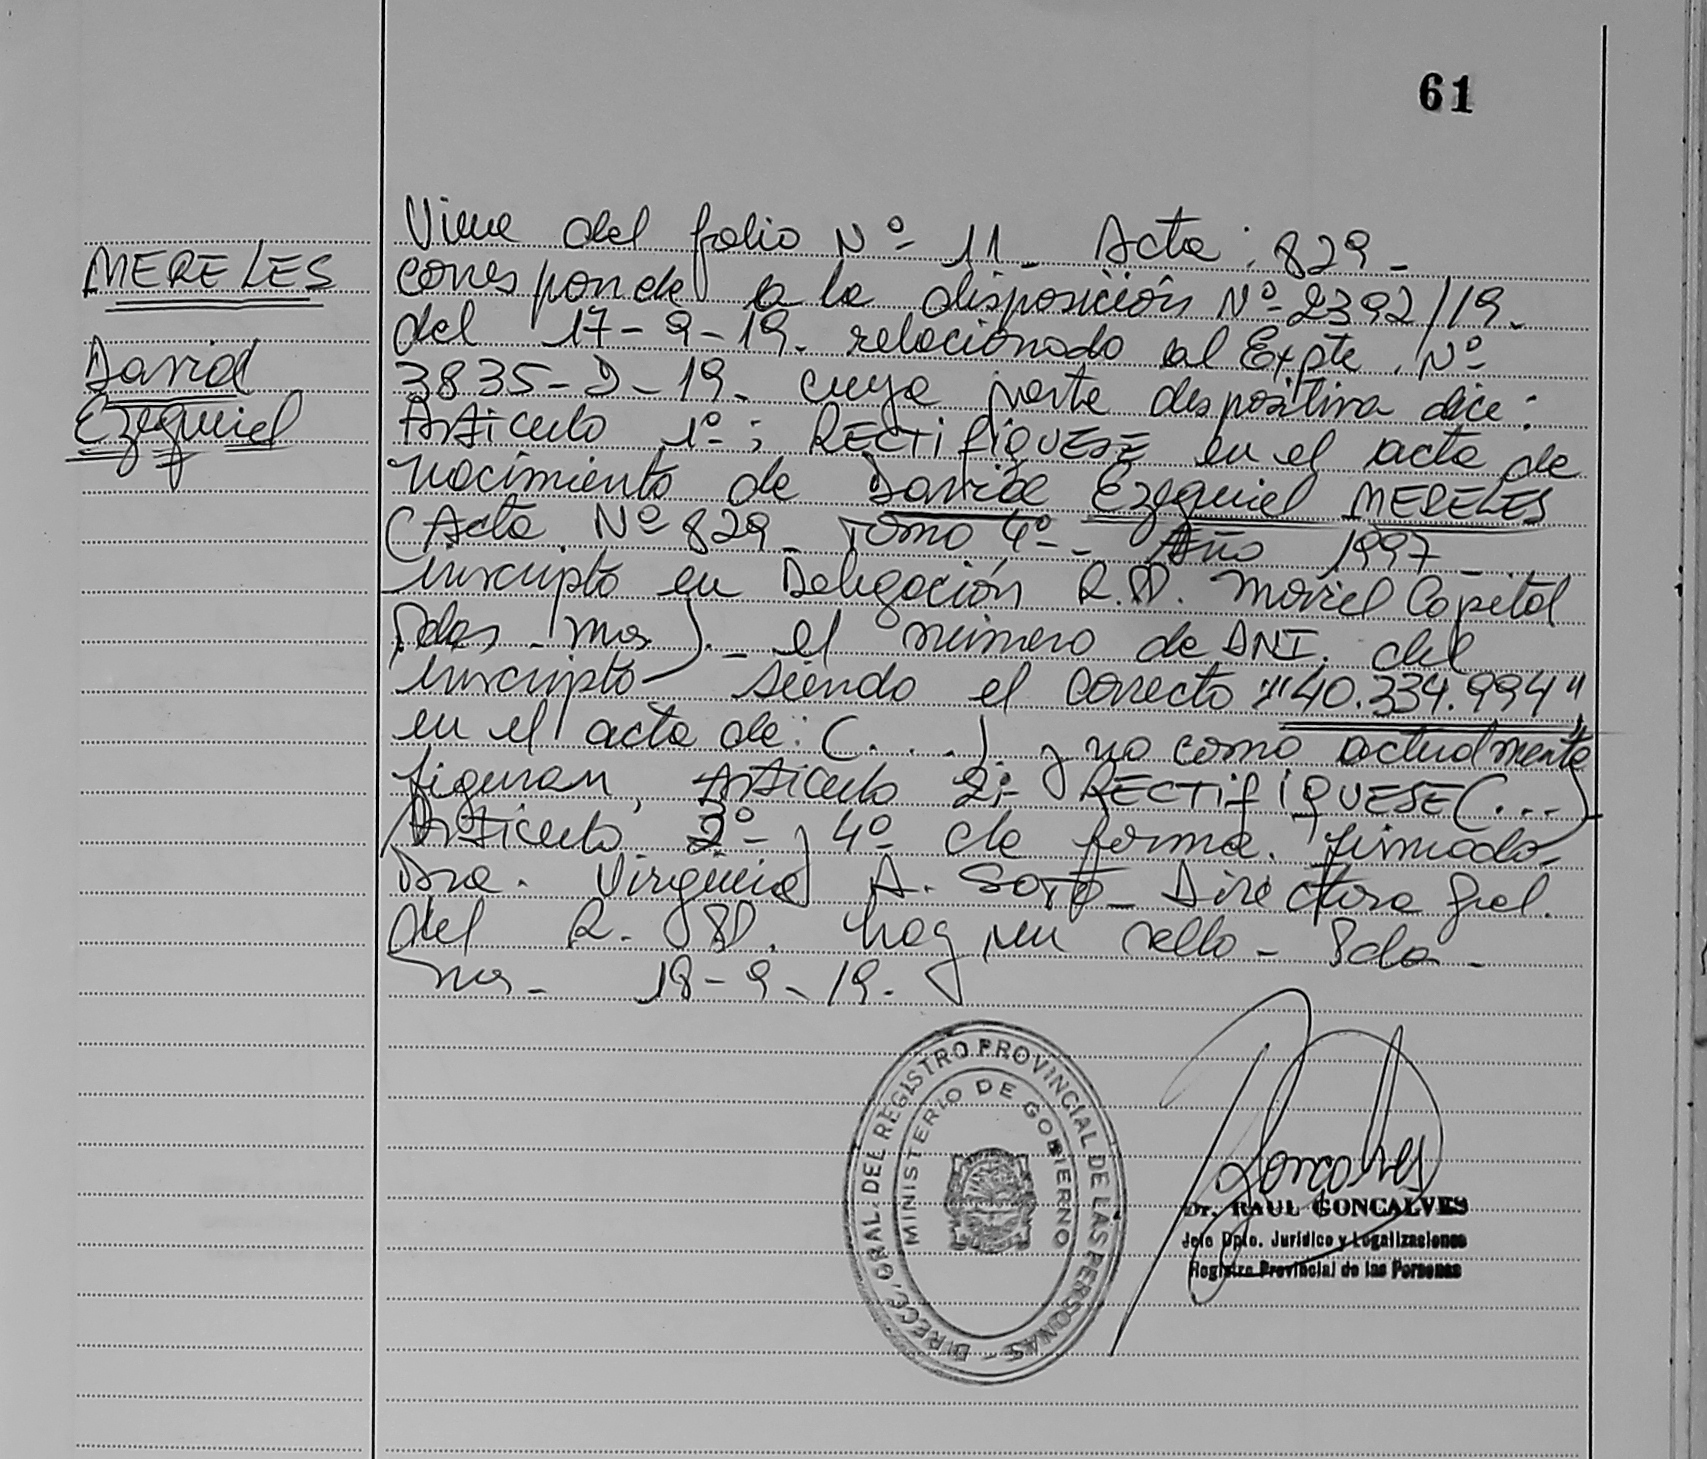 61
MERELES
David
Ezequiel
Viene del folio Nº 11 - Acta: 829 -
corresponde a la disposición Nº 2392/19.
del 17-9-19. relacionado al Expte. Nº
3835-D-19. cuya parte dispositiva dice:
Articulo 1º: RECTIFIQUESE en el acta de
nacimiento de David Ezequiel MERELES
(Acta Nº 829 - Tomo 4º - Año 1997 -
inscripto en Delegación R.P. Movil Capital
Pdas - Mns). - el número de DNI. del
inscripto - siendo el correcto "40.334.994"
en el acta de: (....) y no como actualmente
figuran, Articulo 2º- RECTIFIQUESE (...)
Articulo 3º- y 4º de forma. firmado-
Dra. Virginia A. Soto - Directora Gral.
del R. P. hay un sello - Pdas -
Mns - 18-9-19.
DIRECC. GRAL. DEL REGISTRO PROVINCIAL DE LAS PERSONAS -
MINISTERIO DE GOBIERNO
Goncalves
Dr. RAUL GONCALVES
Jefe Dpto. Jurídico y Legalizaciones
Registro Provincial de las Personas